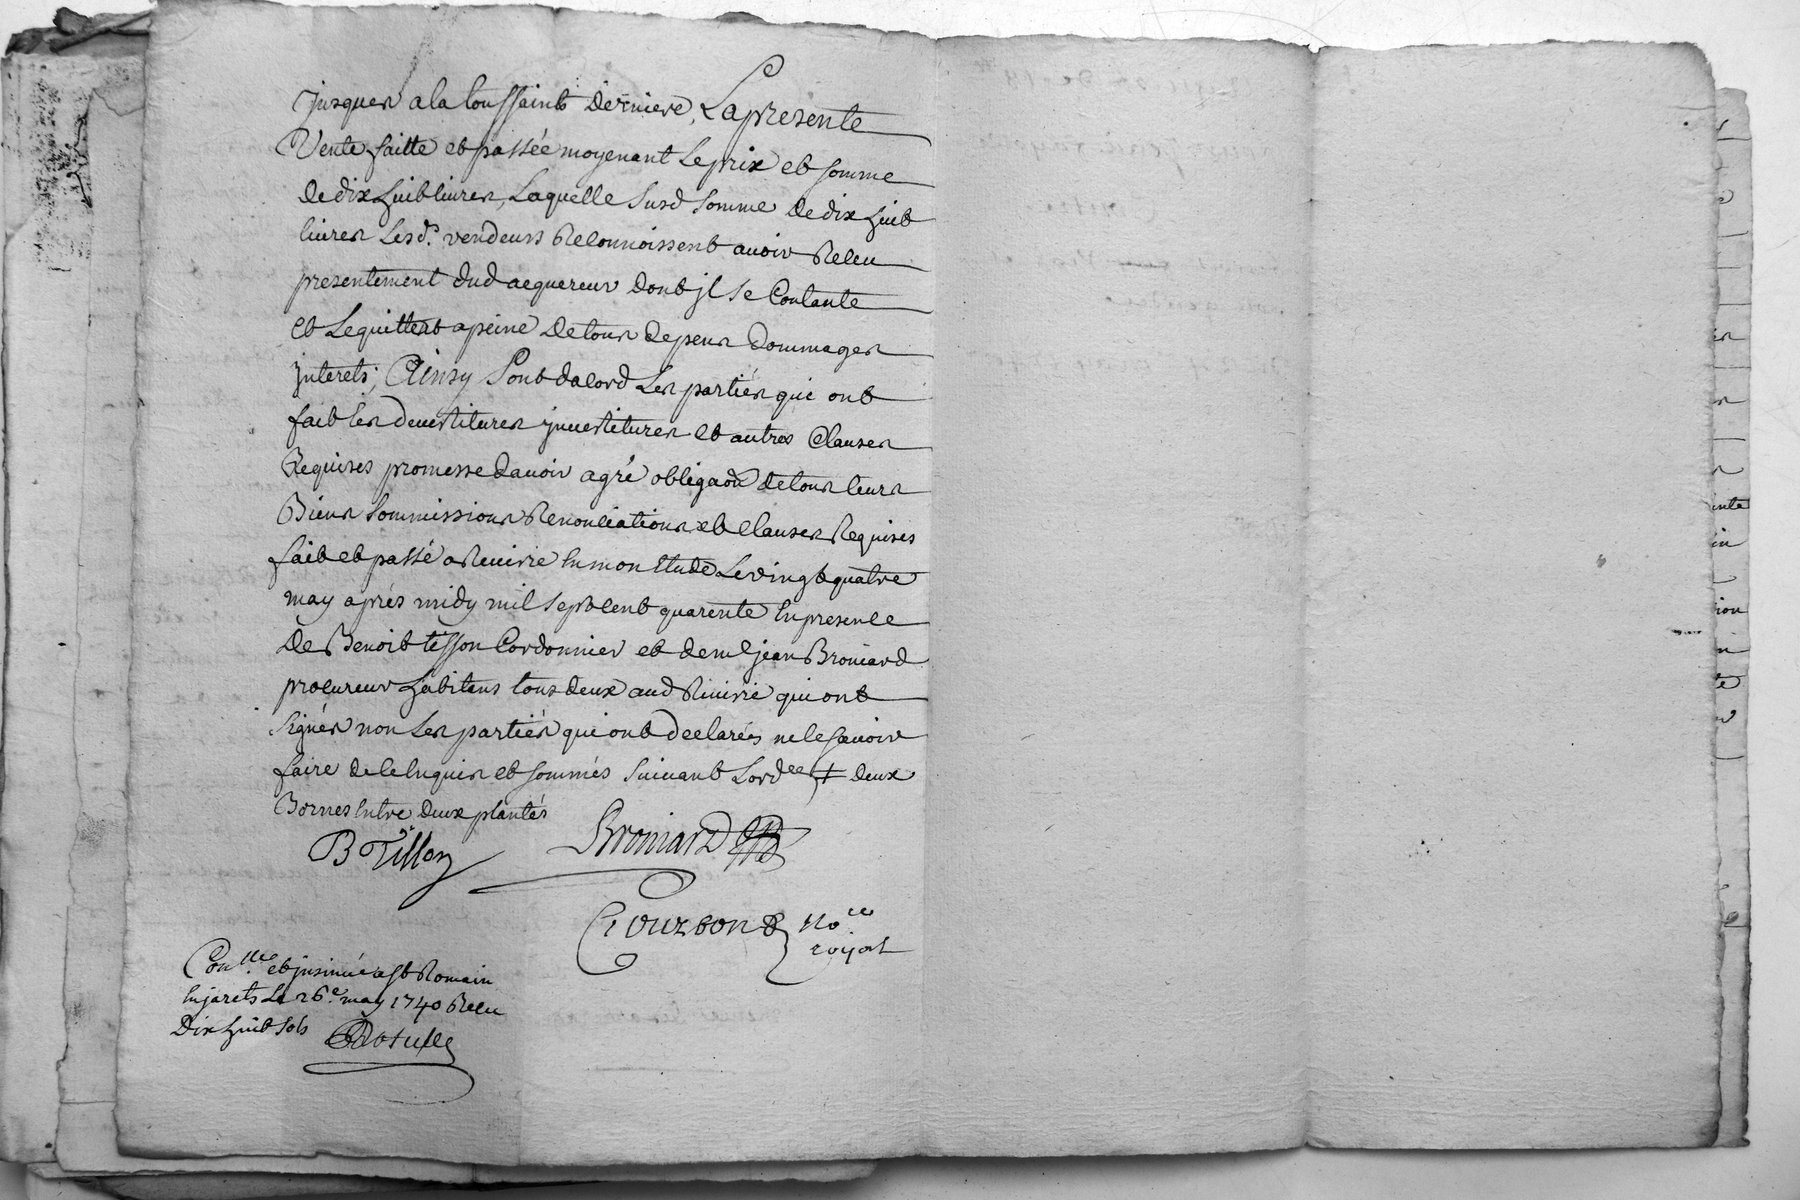 jusques a la toussaints derniere, La presente
Vente faitte et passée moyenant le prix et somme
de dix huit livres, Laquelle susd somme de dix huit
livres Lesd.s vendeurs Reconnoissent avoir Receu
presentement dud acquereur dont jl se Contante
et Le quittent a peine de tous depens dommages
jnterets; Ainsy sont dacord Les partiés qui ont
fait les devestitures jnvestitures et autres Clauses
Requises promesse davoir agré obligaõn de tous leurs
Biens sommissions Renonciations et Clauses Requises
fait et passé a Riuirie en mon Etude Le vingt quatre
may aprés midy mil sept Cent quarente En presence
De Benoit tisson Cordonnier et de me jean Broniard
procureur habitans tous deux aud Riuirie qui ont
signés non Les partiés qui ont declarées ne le sçavoir
faire de ce Enquis et sommés suivant Lordce ‡ deux
Bornes Entre deux plantés
B Tisson
Broniard
Gouzbon No.re
royal
Conlle et jnsinué a st Romain
En jarets Le 26.e may 1740 Receu
Dix huit sols